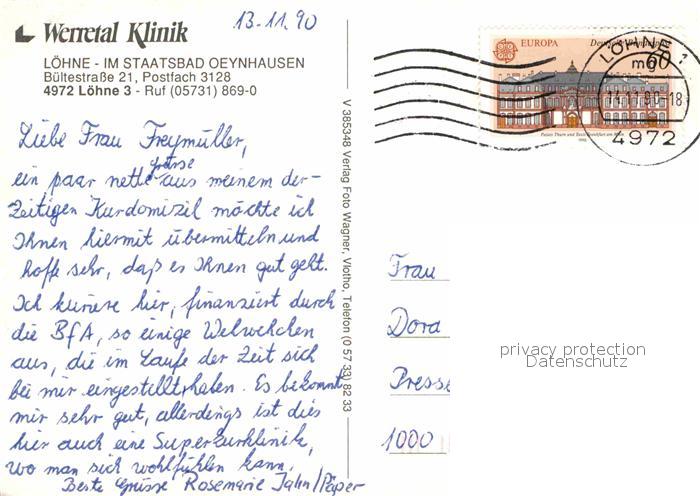 Werretal Klinik
13.11.90
LÖHNE - IM STAATSBAD OEYNHAUSEN
Bültestraße 21, Postfach 3128
4972 Löhne 3 - Ruf (05731) 869-0
Liebe Frau Freymüller,
ein paar nette Grüsse aus meinem der-
zeitigen Kurdomizil möchte ich
Ihnen hiermit übermitteln und
hoffe sehr, daß es Ihnen gut geht.
Ich kuriere hier, finanziert durch
die BfA, so einige Wehwehchen
aus, die im Laufe der Zeit sich
bei mir eingestellt haben. Es bekommt
mir sehr gut, allerdings ist dies
hier auch eine Superkurklinik,
wo man sich wohlfühlen kann.
Beste Grüsse Rosemarie Jahn/Päper
V 385348 Verlag Foto Wagner, Vlotho, Telefon (0 57 33) 82 33
EUROPA
60
LÖHNE 1
-18
4972
Palais Thurn und Taxis Frankfurt am Main
Frau
Dora
Presse
1000
privacy protection
Datenschutz